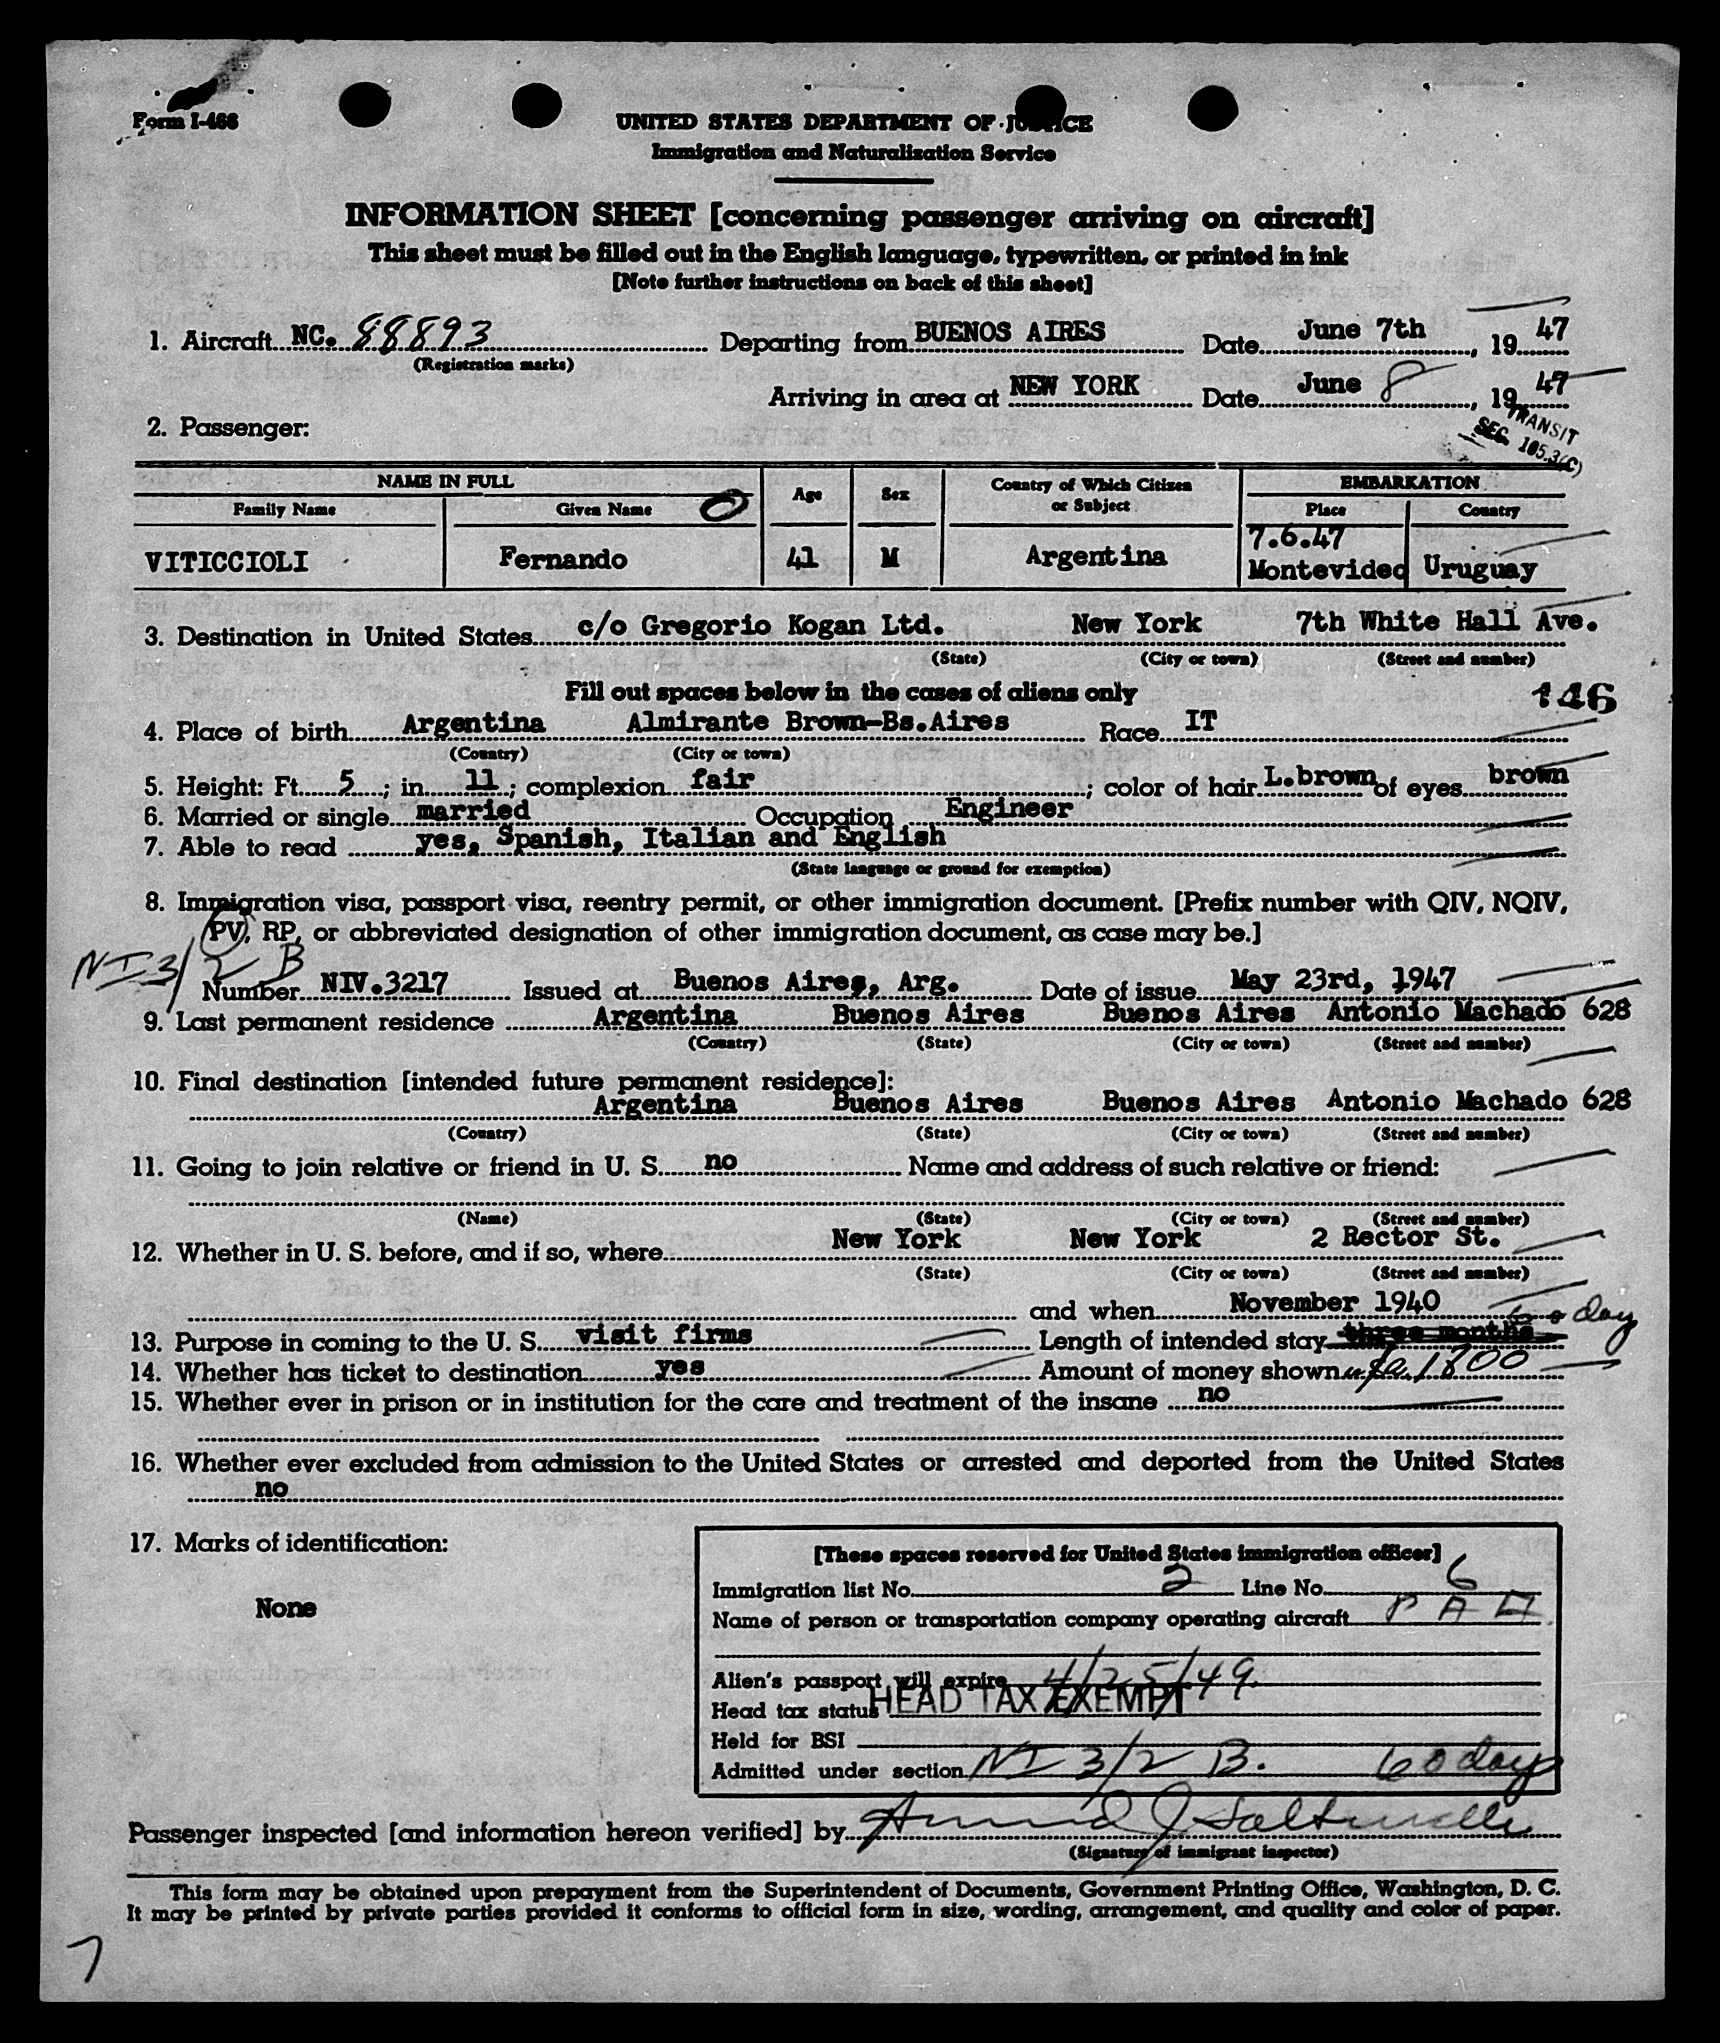 Form I-466
UNITED STATES DEPARTMENT OF JUSTICE
Immigration and Naturalization Service
INFORMATION SHEET [concerning passenger arriving on aircraft]
This sheet must be filled out in the English language, typewritten, or printed in ink
[Note further instructions on back of this sheet]
1. Aircraft NC. 88893 Departing from BUENOS AIRES Date June 7th, 19 47
(Registration marks)
Arriving in area at NEW YORK Date June 8, 19 47
TRANSIT
SEC. 105.3(C)
2. Passenger:
NAME IN FULL Age Sex Country of Which Citizen or Subject EMBARKATION
Family Name Given Name O Place Country
7.6.47
VITICCIOLI Fernando 41 M Argentina Montevideo Uruguay
3. Destination in United States c/o Gregorio Kogan Ltd. New York 7th White Hall Ave.
(State) (City or town) (Street and number)
Fill out spaces below in the cases of aliens only 146
4. Place of birth Argentina Almirante Brown-Bs.Aires Race IT
(Country) (City or town)
5. Height: Ft. 5; in. 11; complexion fair; color of hair L.brown of eyes brown
6. Married or single married Occupation Engineer
7. Able to read yes, Spanish, Italian and English
(State language or ground for exemption)
8. Immigration visa, passport visa, reentry permit, or other immigration document. [Prefix number with QIV, NQIV,
PV, RP, or abbreviated designation of other immigration document, as case may be.]
NI 3/2 B
Number NIV.3217 Issued at Buenos Aires, Arg. Date of issue May 23rd, 1947
9. Last permanent residence Argentina Buenos Aires Buenos Aires Antonio Machado 628
(Country) (State) (City or town) (Street and number)
10. Final destination [intended future permanent residence]:
Argentina Buenos Aires Buenos Aires Antonio Machado 628
(Country) (State) (City or town) (Street and number)
11. Going to join relative or friend in U. S. no Name and address of such relative or friend:
(Name) (State) (City or town) (Street and number)
12. Whether in U. S. before, and if so, where New York New York 2 Rector St.
(State) (City or town) (Street and number)
and when November 1940
60 day
13. Purpose in coming to the U. S. visit firms Length of intended stay three months
14. Whether has ticket to destination yes Amount of money shown 1800
15. Whether ever in prison or in institution for the care and treatment of the insane no
16. Whether ever excluded from admission to the United States or arrested and deported from the United States
no
17. Marks of identification:
None
[These spaces reserved for United States immigration officer]
Immigration list No. 2 Line No. 6
Name of person or transportation company operating aircraft P A A
Alien's passport will expire 4/25/49.
Head tax status HEAD TAX EXEMPT
Held for BSI
Admitted under section NI 3/2 B. 60 days
Passenger inspected [and information hereon verified] by
(Signature of immigrant inspector)
This form may be obtained upon prepayment from the Superintendent of Documents, Government Printing Office, Washington, D. C.
It may be printed by private parties provided it conforms to official form in size, wording, arrangement, and quality and color of paper.
7